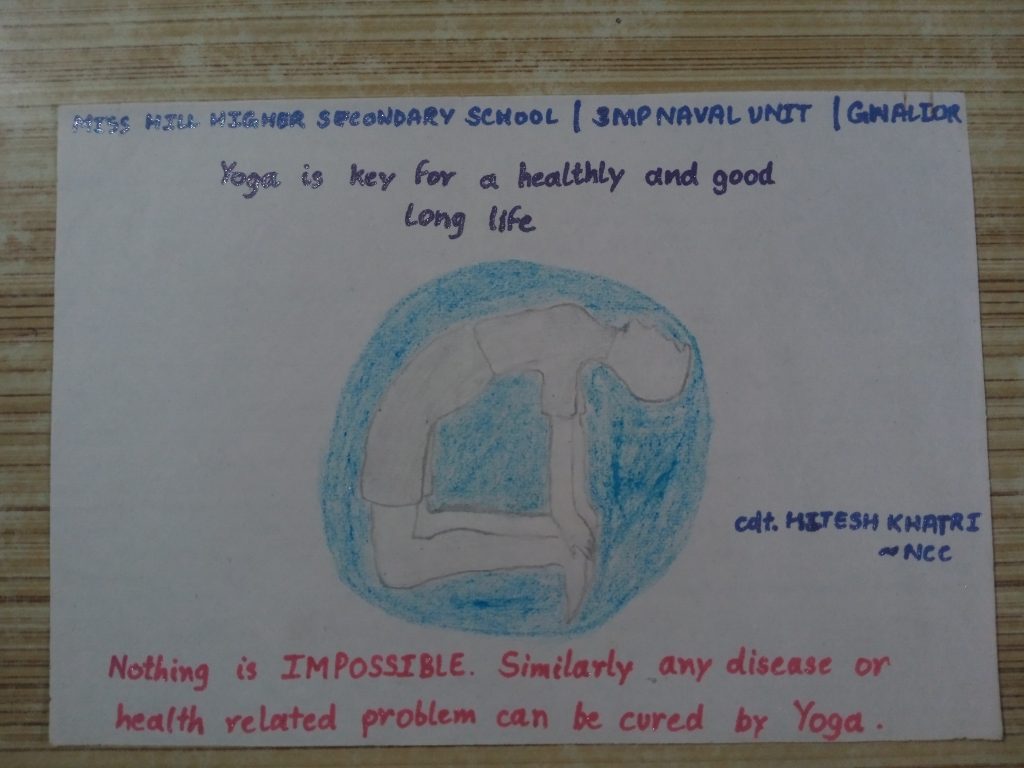 MISS HILL HIGHER SECONDARY SCHOOL | 3MP NAVAL UNIT | GWALIOR
Yoga is key for a healthly and good
Long life
cdt. HITESH KHATRI
~ NCC
Nothing is IMPOSSIBLE. Similarly any disease or
health related problem can be cured by Yoga.